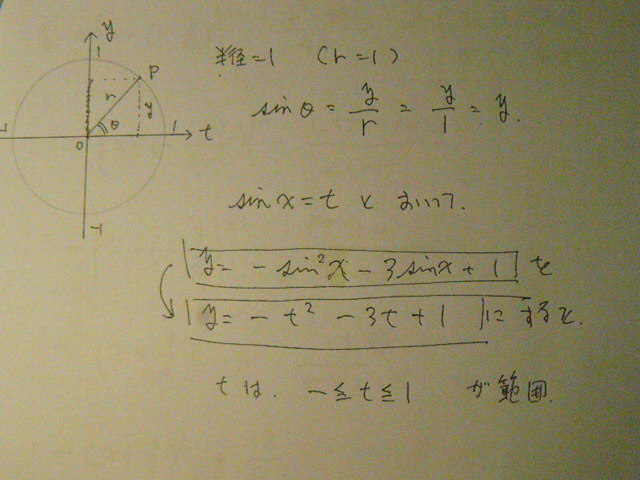 y
1
P
r
y
θ
-1
0
1
t
-1
半径=1 (r=1)
sinθ = y/r = y/1 = y.
sinx=t とおいて.
y= - sin²x - 3sinx + 1 を
y= - t² - 3t + 1 にすると.
tは. -≦t≦1 が範囲.